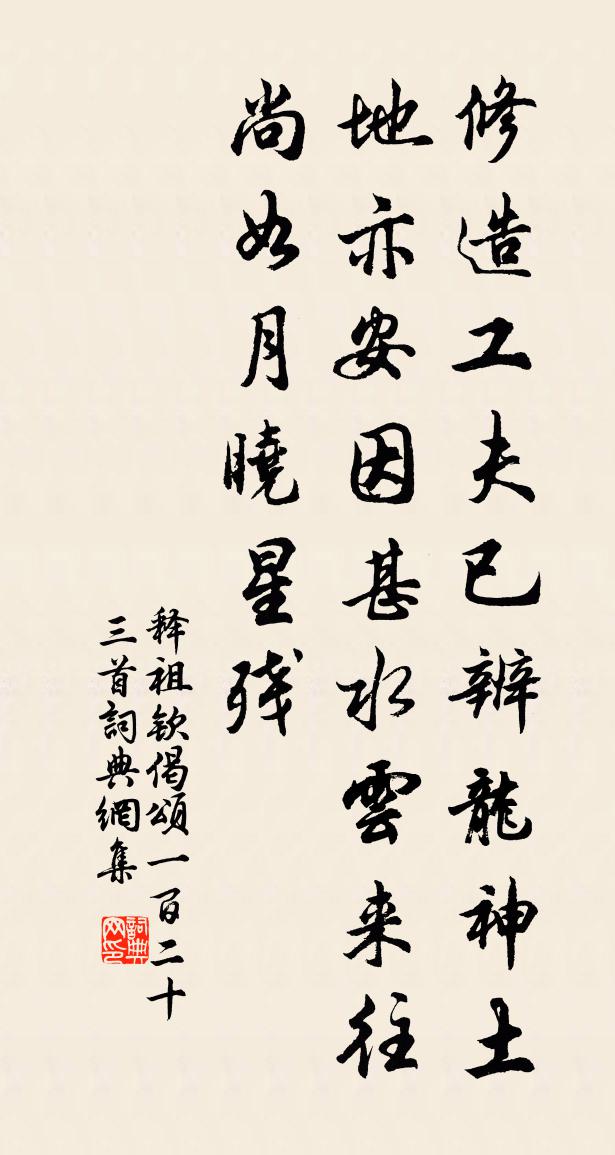 修造工夫已辨龍神土
地亦安因甚水雲来往
尚如月曉星残
释祖欽偈頌一百二十
三首詞典網集
詞典网印